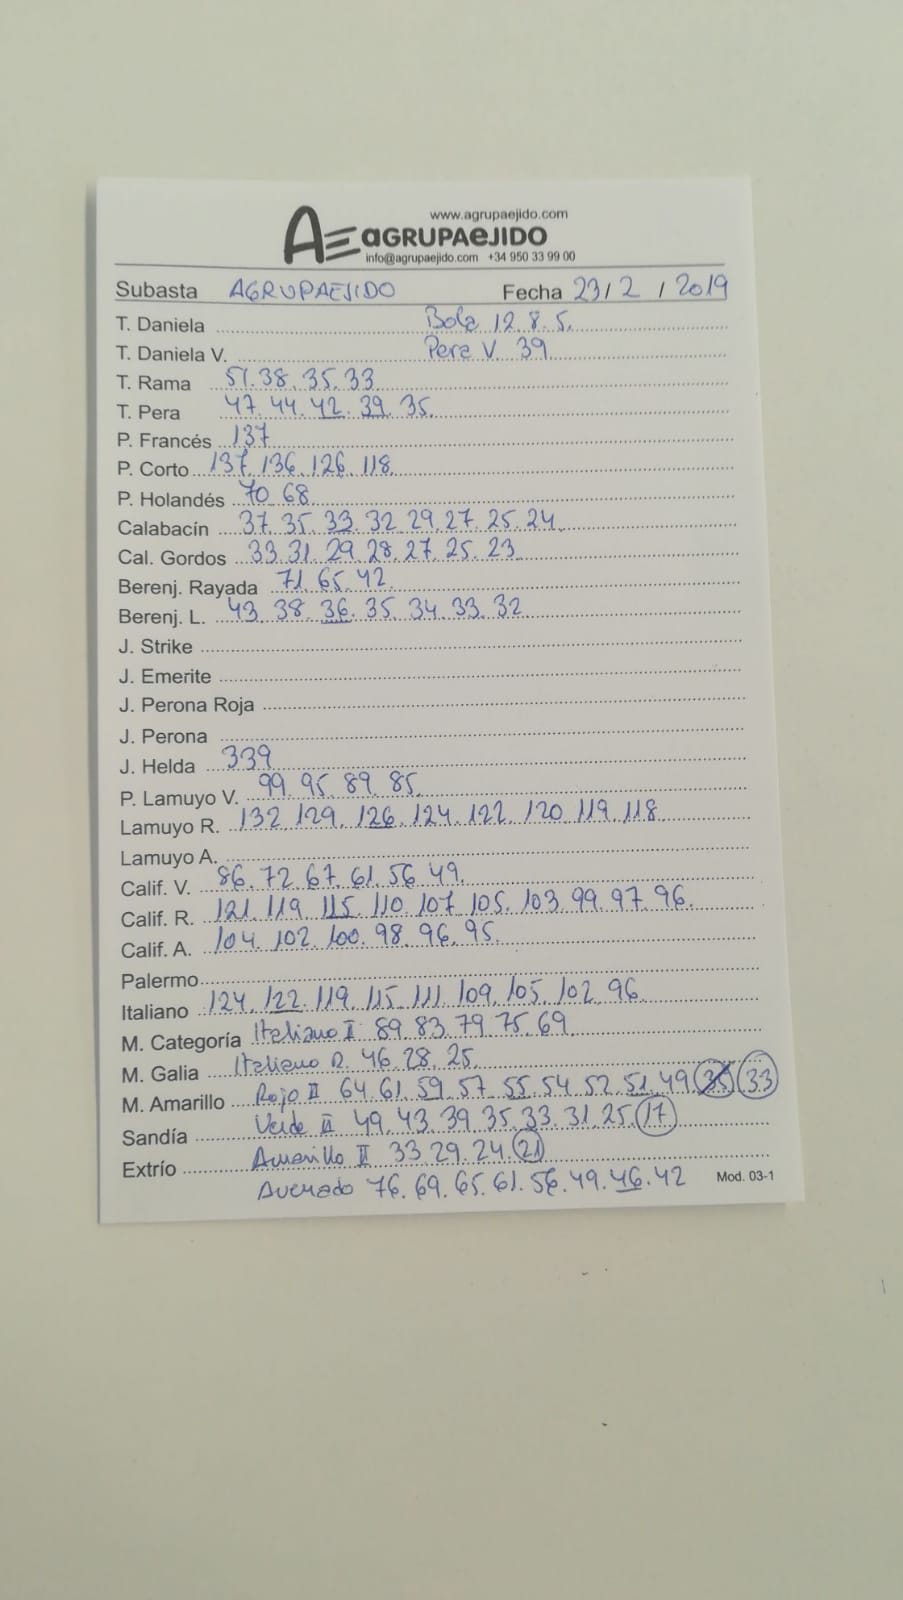 www.agrupaejido.com
AGRUPAEJIDO
info@agrupaejido.com +34 950 33 99 00
Subasta AGRUPAEJIDO Fecha 23/2/2019
T. Daniela Bola 12. 8. 5.
T. Daniela V. Pera V. 39
T. Rama 51. 38. 35. 33
T. Pera 47. 44. 42. 39. 35.
P. Francés 137
P. Corto 137. 136. 126. 118
P. Holandés 70 68
Calabacín 37. 35. 33. 32 29. 27. 25. 24
Cal. Gordos 33. 31. 29. 28. 27. 25. 23
Berenj. Rayada 71. 65. 42
Berenj. L. 43. 38. 36. 35. 34. 33. 32
J. Strike
J. Emerite
J. Perona Roja
J. Perona
J. Helda 339
P. Lamuyo V. 99. 95. 89. 85
Lamuyo R. 132. 129. 126. 124. 122. 120. 119. 118
Lamuyo A.
Calif. V. 86. 72. 67. 61. 56. 49.
Calif. R. 121. 119. 115. 110. 107. 105. 103. 99. 97. 96.
Calif. A. 104. 102. 100. 98. 96. 95.
Palermo
Italiano 124. 122. 119. 115. 111. 109. 105. 102. 96
M. Categoría Italiano I 89. 83. 79. 75. 69
M. Galia Italiano R. 46. 28. 25
M. Amarillo Rojo II 64. 61. 59. 57. 55. 54. 52. 51. 49 35 33
Sandía Verde II 49. 43. 39. 35. 33. 31. 25. 17
Extrío Amarillo II 33. 29. 24. 21
Averado 76. 69. 65. 61. 56. 49. 46. 42 Mod. 03-1